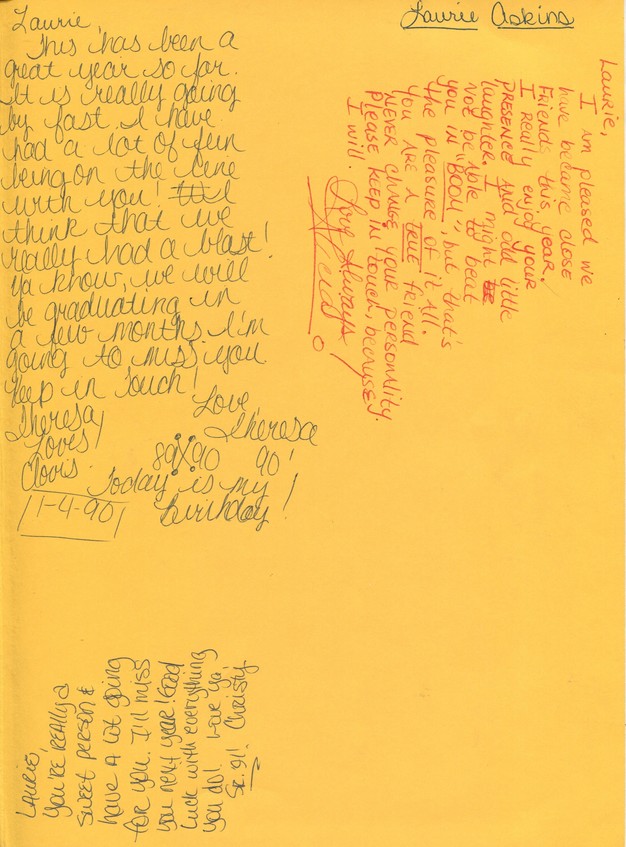 Laurie Askins
Laurie,
This has been a
great year so far.
It is really going
by fast. I have
had a lot of fun
being on the line
with you! I
think that we
really had a blast!
Ya know, we will
be graduating in
a few months. I'm
going to miss you
Keep in touch!
Love,
Theresa
Theresa
Loves
Clovis
89 90 90'
Today is my
Birthday!
1-4-90
Laurie,
I am pleased we
have become close
Friends this year.
I really enjoy your
presence and odd little
laughter. I might
not be able to beat
you in "BOOM", but that's
the pleasure of it all.
You are a true friend
never change your personality.
Please keep in touch, because
I will.
Love Always,
Laurie,
You're really a
sweet person &
have a lot going
for you. I'll miss
you next year! Good
luck with everything
you do! Love ya,
Christy
Sr. 91!